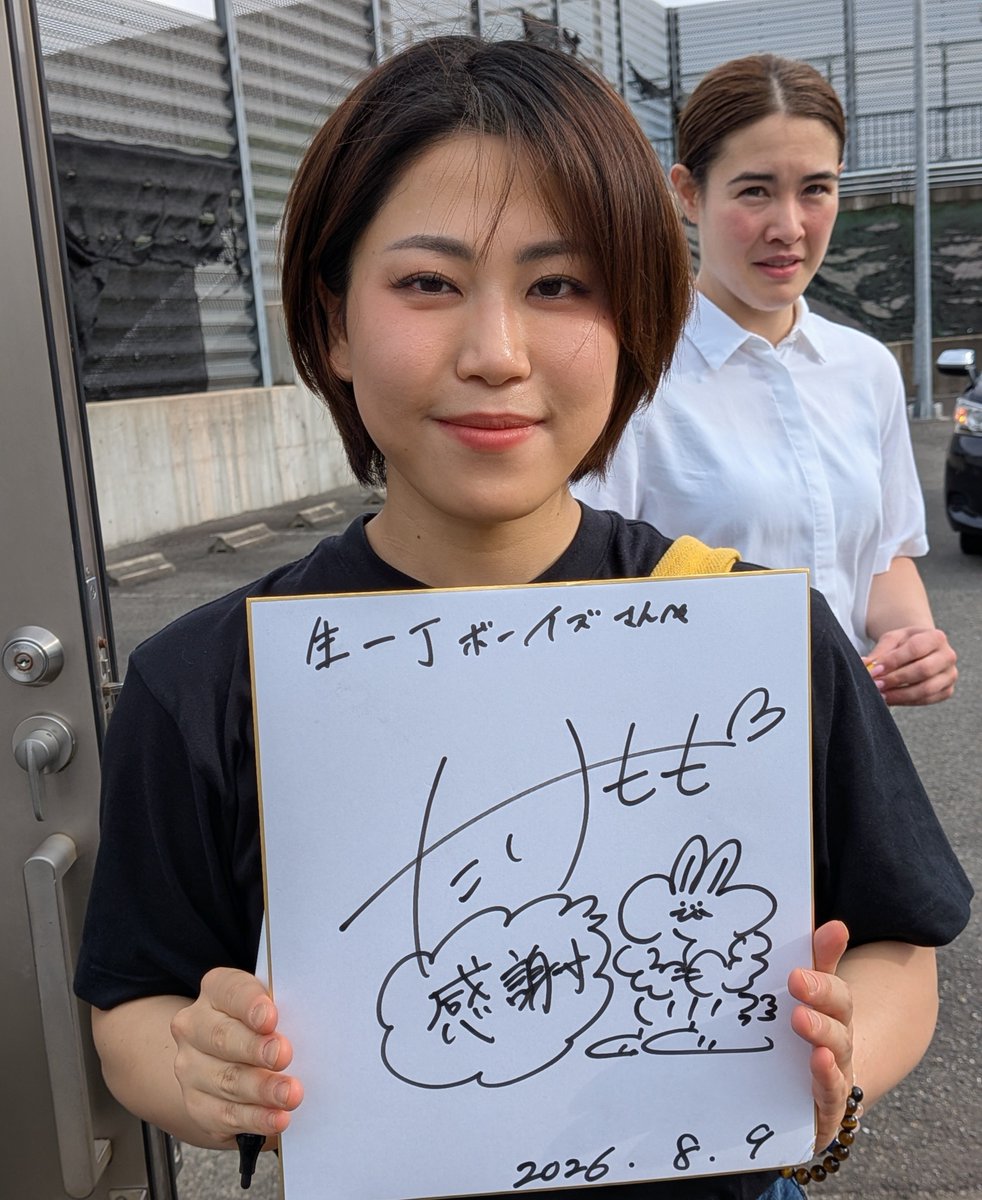 生一丁ボーイズさんへ
もも
感謝
2026.8.9